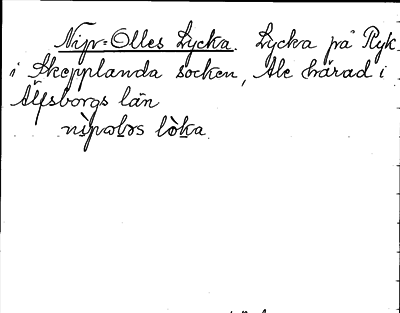 Nipr-Olles Lycka. Lycka på Ryk
i Skepplanda socken, Ale härad i
Älfsborgs län
nìpəɷləs lò̱ka